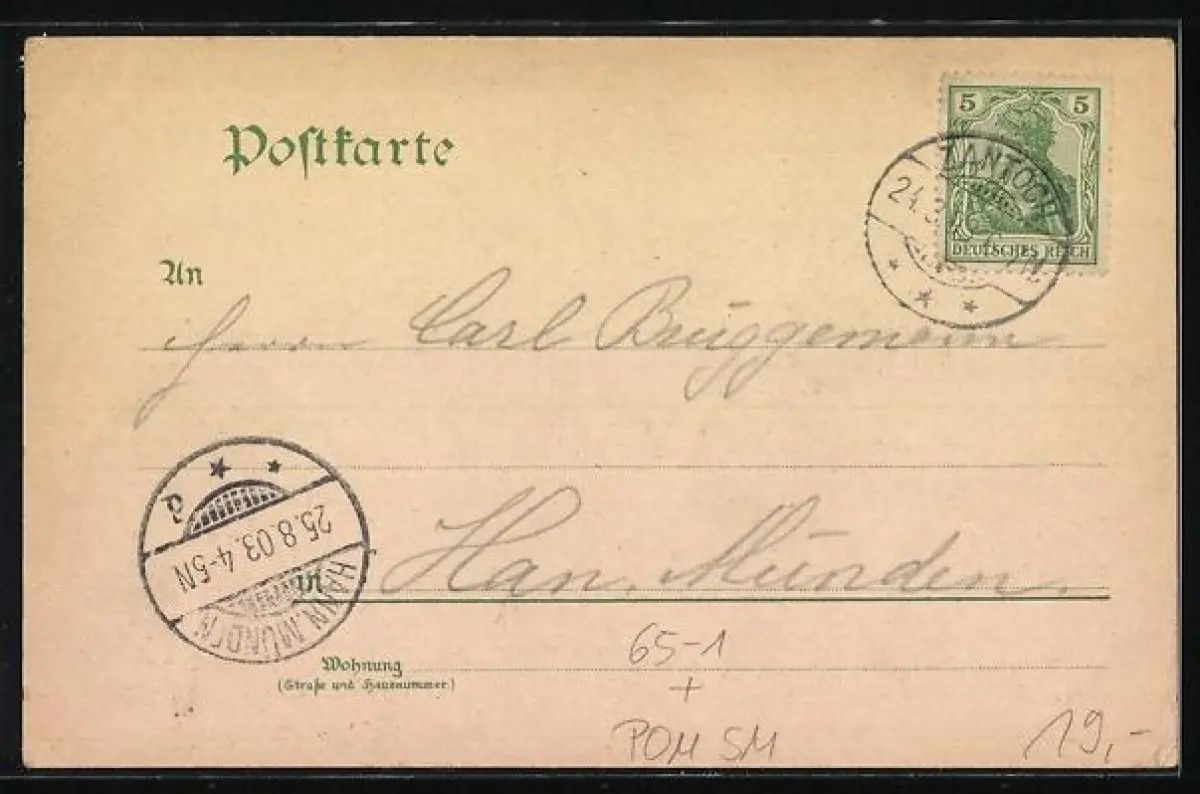 5 5
DEUTSCHES REICH
ZANTOCH
24.8
Postkarte
An
Herrn Carl Brüggemann
25.8.03.4-5N
HANN. MÜNDEN
d
in Han. Münden.
Wohnung
(Straße und Hausnummer)
65-1
+
POM SM
19,-